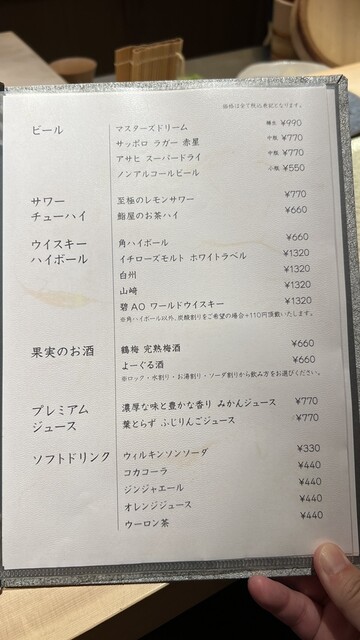 価格は全て税込表記となります。
ビール
マスターズドリーム 樽生 ¥990
サッポロ ラガー 赤星 中瓶 ¥770
アサヒ スーパードライ 中瓶 ¥770
ノンアルコールビール 小瓶 ¥550
サワー
チューハイ
至極のレモンサワー ¥770
鮨屋のお茶ハイ ¥660
ウイスキー
ハイボール
角ハイボール ¥660
イチローズモルト ホワイトラベル ¥1320
白州 ¥1320
山崎 ¥1320
碧AO ワールドウイスキー ¥1320
※角ハイボール以外、炭酸割りをご希望の場合+110円頂戴いたします。
果実のお酒
鶴梅 完熟梅酒 ¥660
よーぐる酒 ¥660
※ロック・水割り・お湯割り・ソーダ割りから飲み方をお選びください。
プレミアム
ジュース
濃厚な味と豊かな香り みかんジュース ¥770
葉とらず ふじりんごジュース ¥770
ソフトドリンク
ウィルキンソンソーダ ¥330
コカコーラ ¥440
ジンジャエール ¥440
オレンジジュース ¥440
ウーロン茶 ¥440